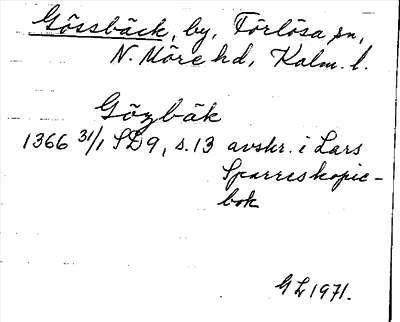 Gössbäck, by, Förlösa sn,
N. Möre hd, Kalm. l.
Gözbäk
1366 31/1 SD 9, s. 13 avskr. i Lars
Sparres kopie-
bok
G L 1971.